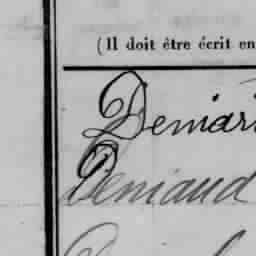 (Il doit être écrit en
Demar
Demaud